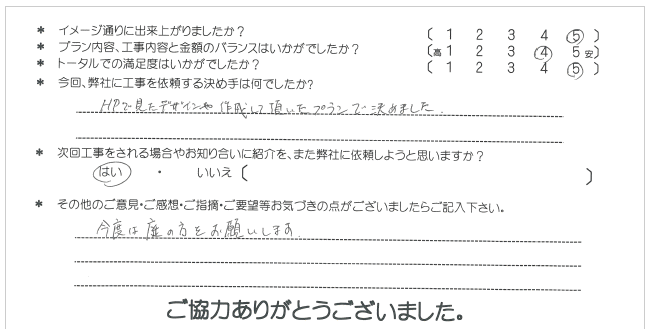 * イメージ通りに出来上がりましたか? ( 1 2 3 4 5 )
* プラン内容、工事内容と金額のバランスはいかがでしたか? (高 1 2 3 4 5 安)
* トータルでの満足度はいかがでしたか? ( 1 2 3 4 5 )
* 今回、弊社に工事を依頼する決め手は何でしたか?
HPで見たデザインや作成して頂いたプランで決めました.
* 次回工事をされる場合やお知り合いに紹介を、また弊社に依頼しようと思いますか?
はい ・ いいえ ( )
* その他のご意見・ご感想・ご指摘・ご要望等お気づきの点がございましたらご記入下さい。
今度は庭の方をお願いします.
ご協力ありがとうございました。